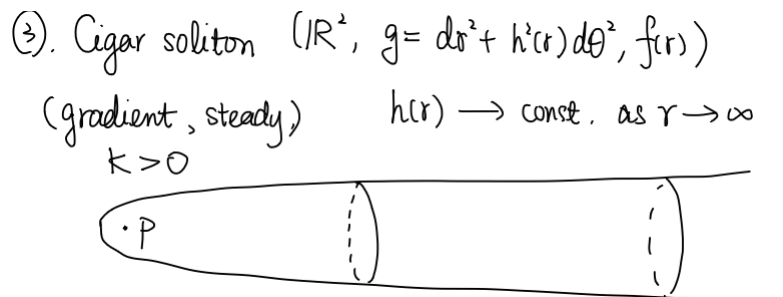 ③. Cigar soliton (ℝ², g = dr² + h²(r)dθ², f(r))
(gradient, steady) h(r) ⟶ const. as r → ∞
K>0
• P